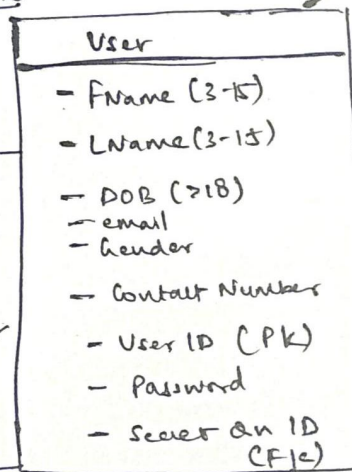 User
- FName (3-15)
- LName (3-15)
- DOB (>18)
- email
- Gender
- Contact Number
- User ID (PK)
- Password
- Secret Qn ID
(FK)